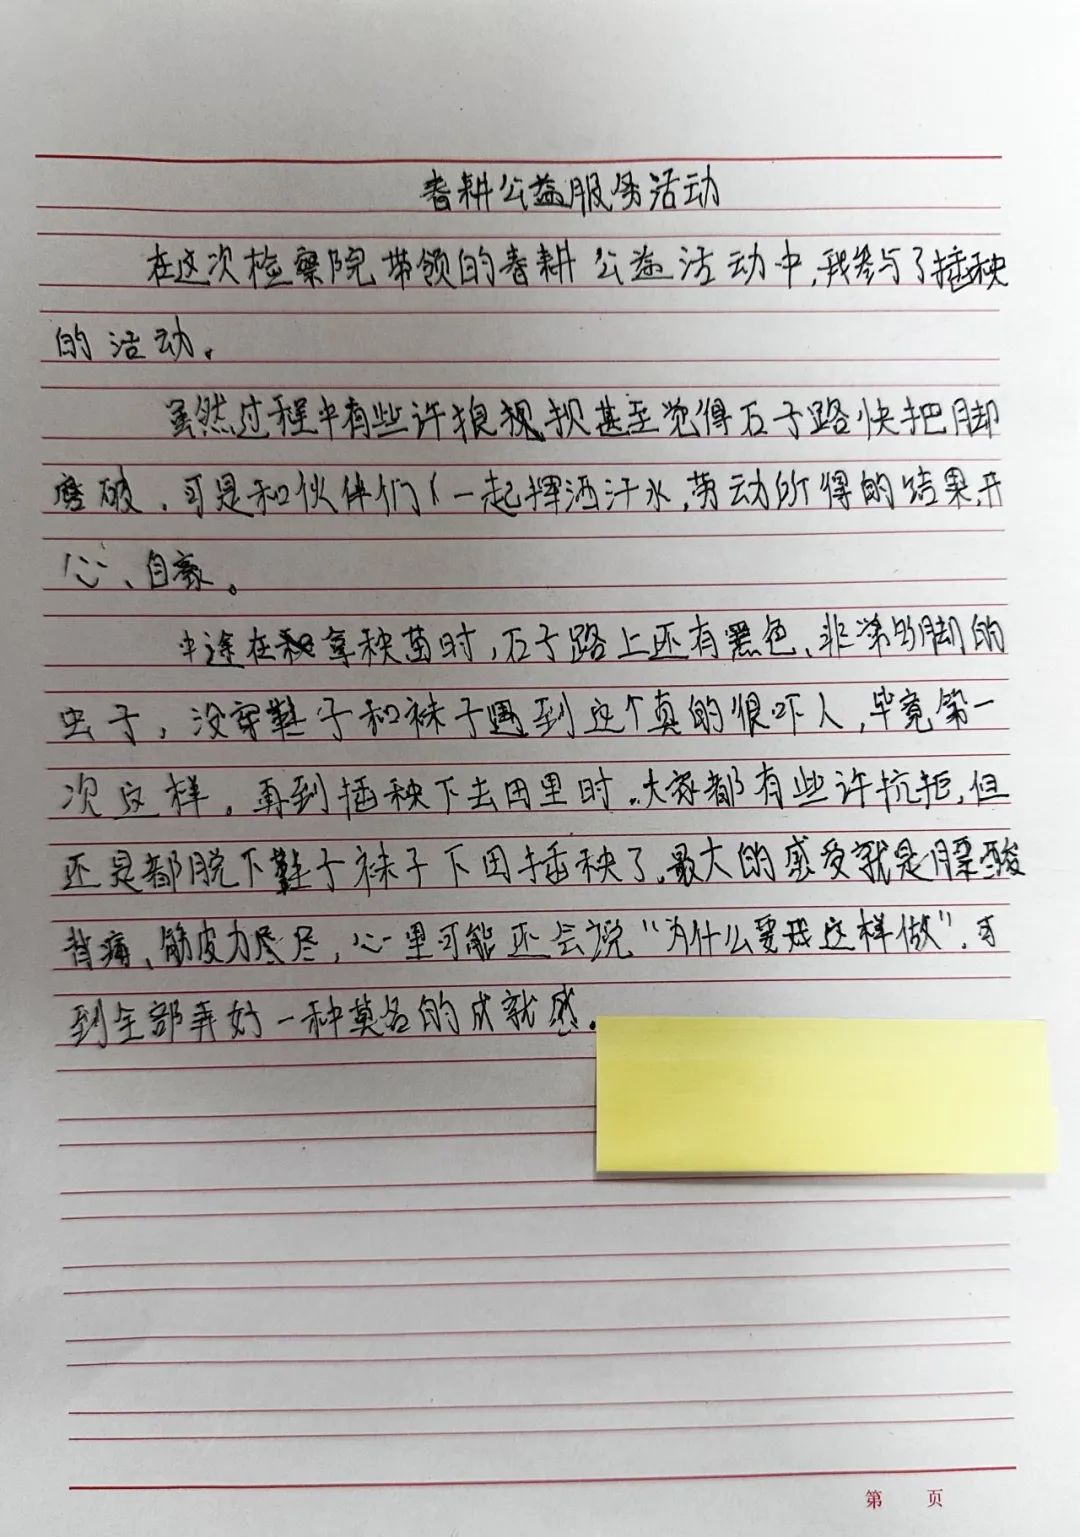 春耕公益服务活动
在这次检察院带领的春耕公益活动中,我参与了插秧
的活动。
虽然过程中有些许狼狈,甚至觉得石子路快把脚
磨破,可是和伙伴们一起挥洒汗水,劳动所得的结果,开
心、自豪。
中途在拿秧苗时,石子路上还有黑色、非常多脚的
虫子,没穿鞋子和袜子遇到这个真的很吓人,毕竟第一
次这样。再到插秧下去田里时。大家都有些许抗拒,但
还是都脱下鞋子袜子下田插秧了。最大的感受就是腰酸
背痛、筋疲力尽,心里可能还会说“为什么要我这样做”,可
到全部弄好一种莫名的成就感。
第 页